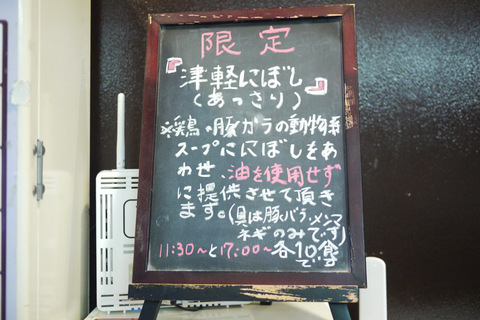 限定
『津軽にぼし』
(あっさり)
※鶏・豚ガラの動物系
スープににぼしをあ
わせ、油を使用せず
に提供させて頂き
ます。(具は豚バラ・メンマ
ネギのみです)
11:30〜と17:00〜各10食
です